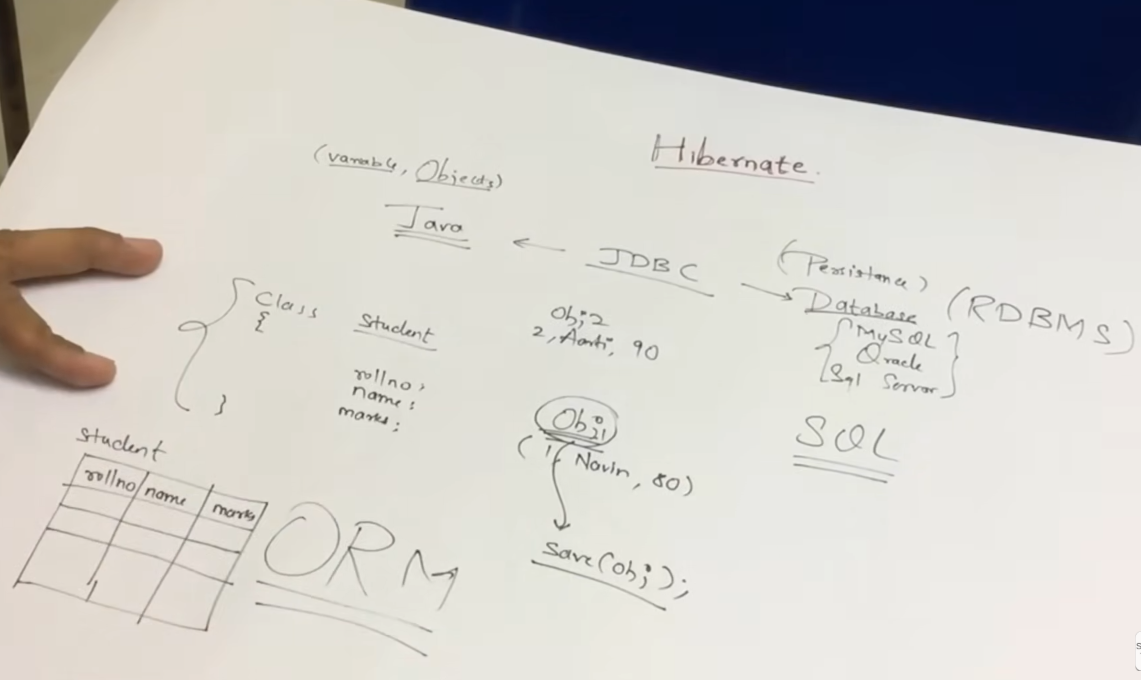 Hibernate.
(variable, Objects)
Java ← JDBC → Database (RDBMS)
(Persistance)
{ MySQL
Oracle
Sql Server }
SQL
Class Student
{
rollno;
name;
marks;
}
Obj2
2, Aarti, 90
Obj1
(1, Navin, 80)
Save(obj);
Student
rollno name marks
ORM